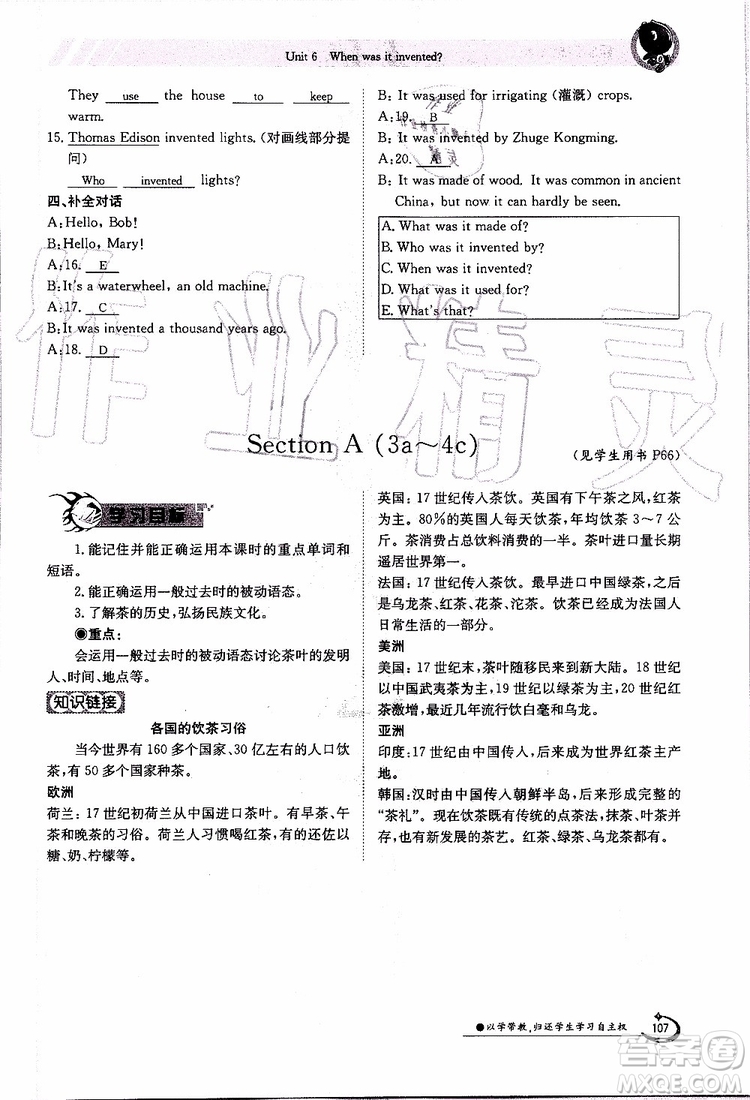 Unit 6 When was it invented?
They use the house to keep
warm.
15. Thomas Edison invented lights. (对画线部分提
问)
Who invented lights?
四、补全对话
A:Hello, Bob!
B:Hello, Mary!
A:16. E
B:It's a waterwheel, an old machine.
A:17. C
B:It was invented a thousand years ago.
A:18. D
B: It was used for irrigating (灌溉) crops.
A:19. B
B: It was invented by Zhuge Kongming.
A:20. A
B: It was made of wood. It was common in ancient
China, but now it can hardly be seen.
A. What was it made of?
B. Who was it invented by?
C. When was it invented?
D. What was it used for?
E. What's that?
Section A (3a~4c)
(见学生用书 P66)
学习目标
1. 能记住并能正确运用本课时的重点单词和
短语。
2. 能正确运用一般过去时的被动语态。
3. 了解茶的历史,弘扬民族文化。
◉重点:
会运用一般过去时的被动语态讨论茶叶的发明
人、时间、地点等。
知识链接
各国的饮茶习俗
当今世界有 160 多个国家、30 亿左右的人口饮
茶,有 50 多个国家种茶。
欧洲
荷兰:17 世纪初荷兰从中国进口茶叶。有早茶、午
茶和晚茶的习俗。荷兰人习惯喝红茶,有的还佐以
糖、奶、柠檬等。
英国:17 世纪传入茶饮。英国有下午茶之风,红茶
为主。80%的英国人每天饮茶,年均饮茶 3~7 公
斤。茶消费占总饮料消费的一半。茶叶进口量长期
遥居世界第一。
法国:17 世纪传入饮茶。最早进口中国绿茶,之后
是乌龙茶、红茶、花茶、沱茶。饮茶已成为法国人
日常生活的一部分。
美洲
美国:17 世纪末,茶叶随移民来到新大陆。18 世纪
以中国武夷茶为主,19 世纪以绿茶为主,20 世纪红
茶激增,最近几年流行饮白毫和乌龙。
亚洲
印度:17 世纪由中国传入,后成为世界红茶主产
地。
韩国:汉时由中国传入朝鲜半岛,后形成完整的
“茶礼”。红茶、绿茶以及传统的点茶法,抹茶、叶茶并
存,也有新发展的茶艺。红茶、绿茶、乌龙茶兼有。
●以学带教,归还学生学习自主权
107
作业精灵
答案圈
MXQE.COM